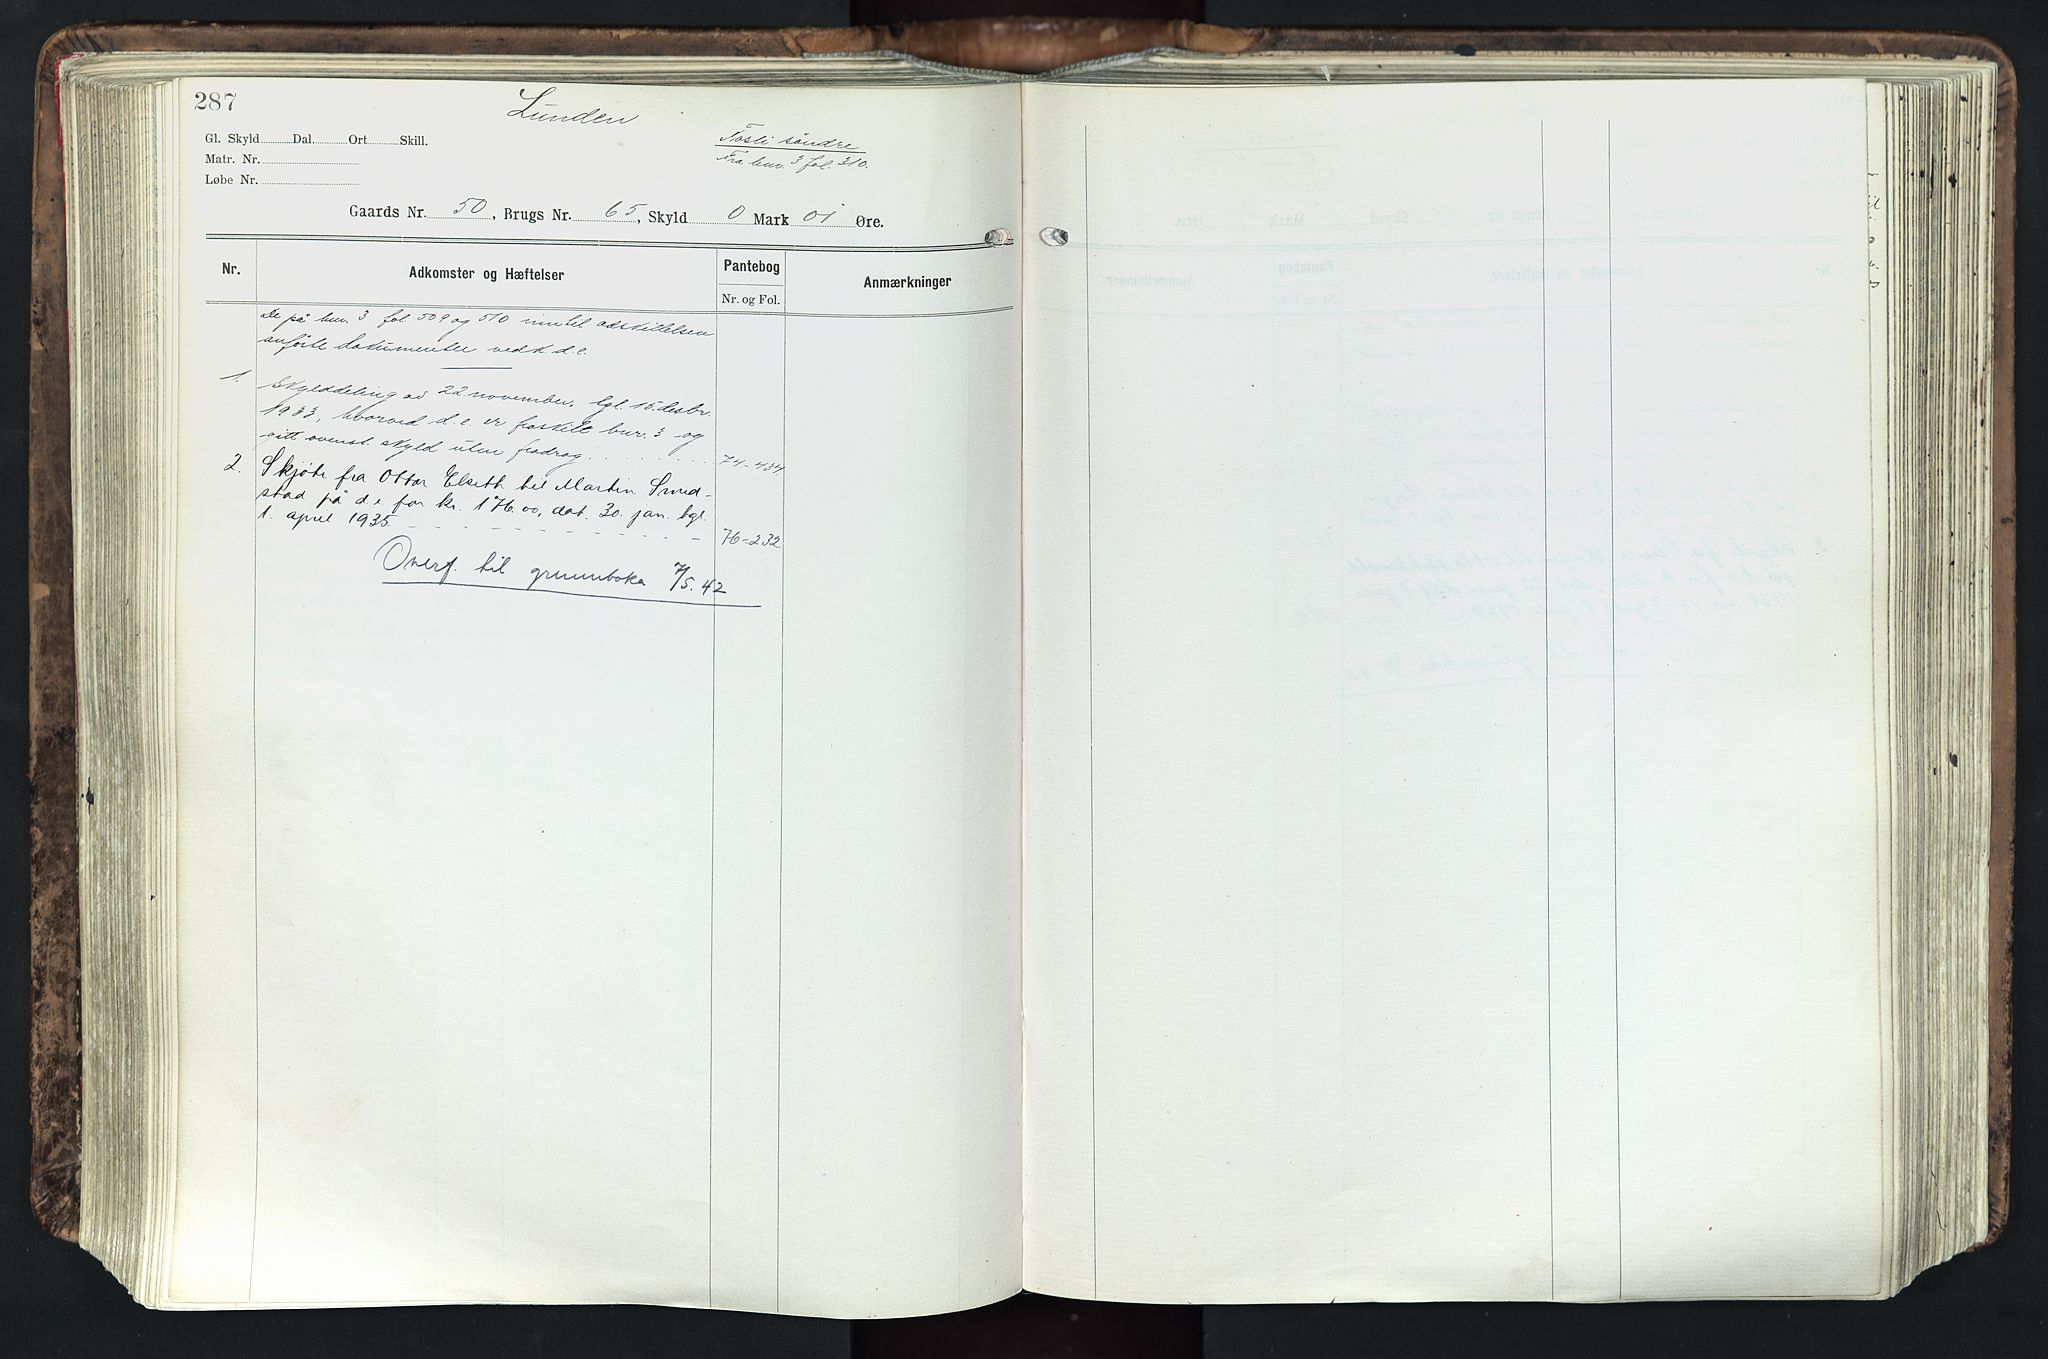 287
Lunden
Gl. Skyld Dal. Ort Skill.
Fosli söndre
Matr. Nr.
Fra bnr. 3 fol. 310.
Løbe Nr.
Gaards Nr. 50, Brugs Nr. 65, Skyld 0 Mark 01 Øre.
Nr. Adkomster og Hæftelser Pantebog Anmærkninger
Nr. og Fol.
De på bnr. 3 fol 509 og 510 inntil adskillelsen
anförte dokumenter vedk. d.e.
1. Skylddeling av 22 november, tgl. 15. desbr.
1933, hvorved d.e. er fraskilt bnr. 3 og
gitt ovenst. skyld uten fradrag. 74-434
2. Skjöte fra Ottar Elseth til Martin Smed-
stad på d.e for kr. 176.00, dat. 30. jan. tgl.
1. april 1935. 76-232
Overf. til grunnboka 7/5. 42